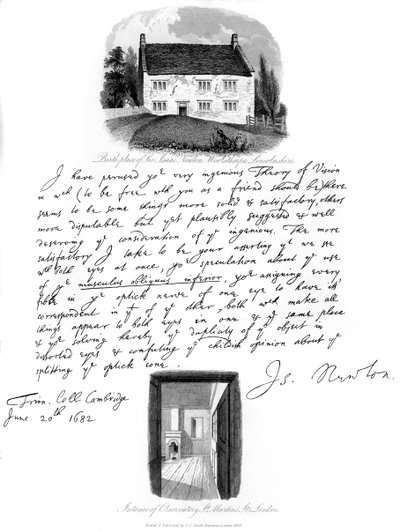 Birthplace of Sir Isaac Newton, Woolsthorpe, Lincolnshire.
I have perused yoʳ very ingenious Theory of Vision
in wᶜʰ (to be free wᵗʰ you as a friend should be) there
seems to be some things more solid & satisfactory, others
more disputable but yet plausibly suggested & well
deserving yᵉ consideration of yᵉ ingenious. The more
satisfactory I take to be your asserting yᵗ we see
wᵗʰ both eyes at once, yoʳ speculation about yᵉ use
of yᵉ musculus obliquus inferior, yoʳ assigning every
fibre in yᵉ optick nerve of one eye to have its
correspondent in yᵗ of yᵉ other, both wᶜʰ make all
things appear to both eyes in one & yᵉ same place
& yoʳ solving hereby yᵉ duplicity of yᵉ object in
distorted eyes & confuting yᵉ childish opinion about yᵉ
splitting yᵉ optick cone.
Is. Newton.
Trin. Coll Cambridge
June 20ᵗʰ 1682
Interior of Observatory, Sᵗ Martins Sᵗ, London.